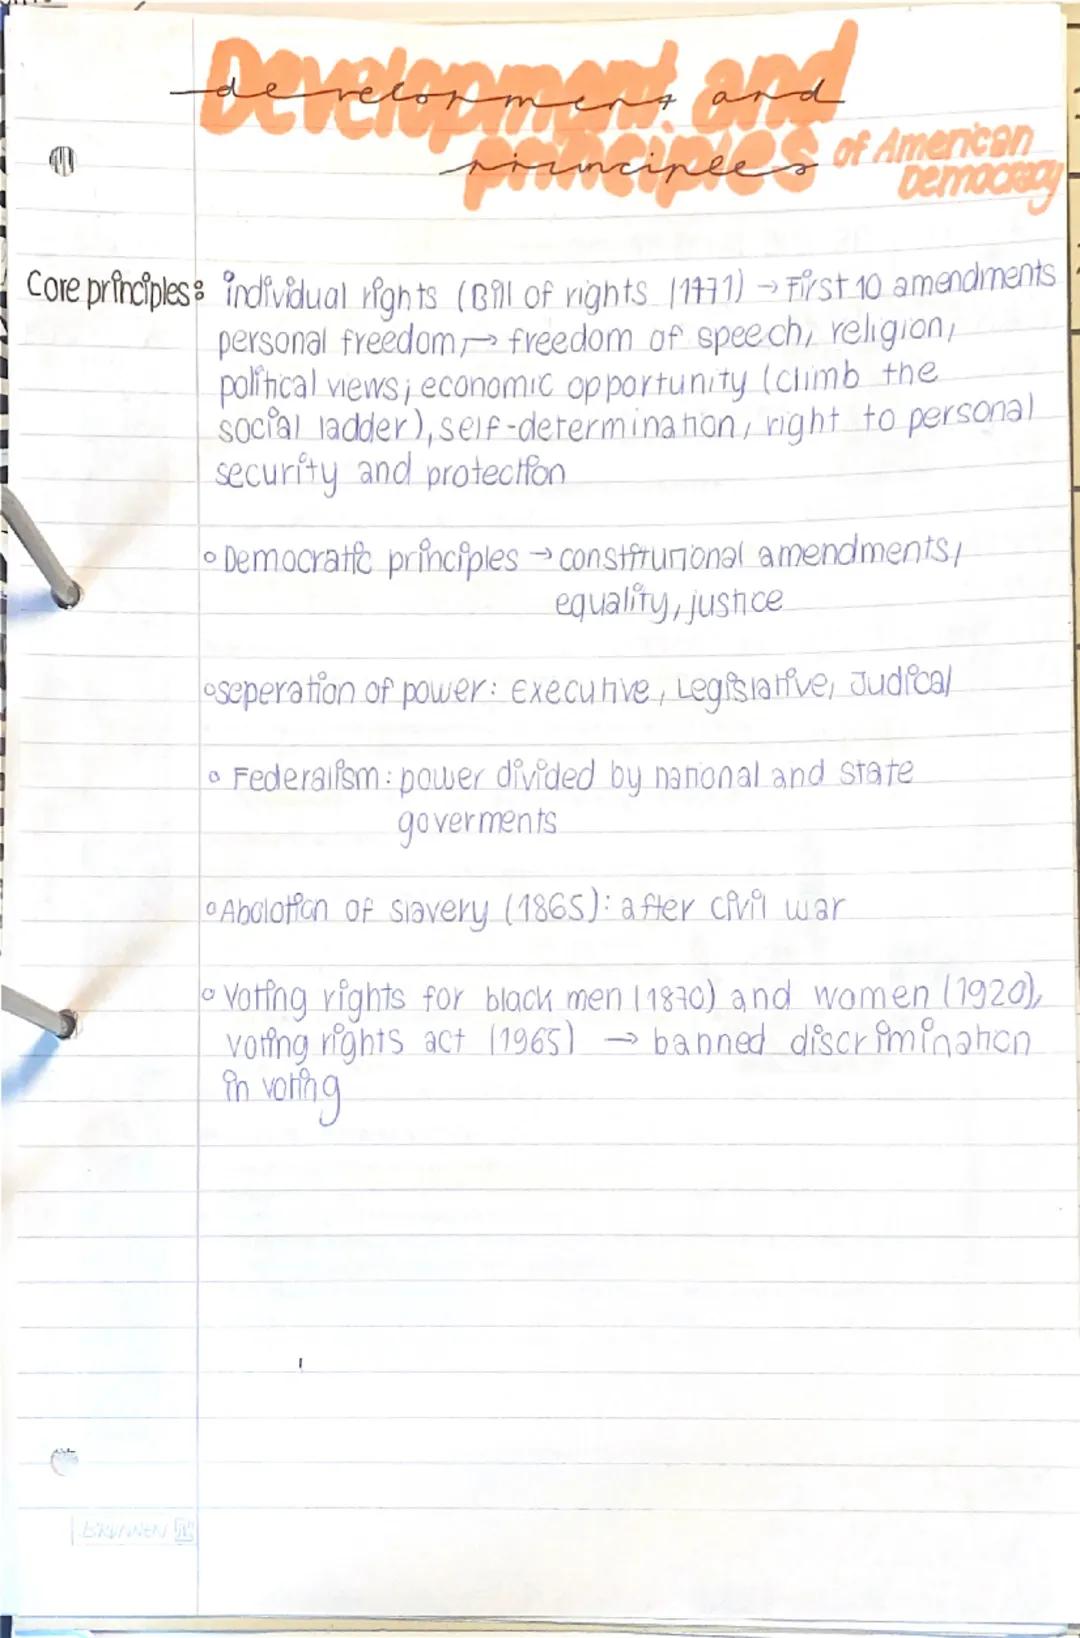 Development and
principles of American
Democracy
Core principles: individual rights (Bill of rights (1791) → First 10 amendments
personal freedom, → freedom of speech, religion,
political views; economic opportunity (climb the
social ladder), self-determination, right to personal
security and protection
◦ Democratic principles → constitutional amendments,
equality, justice
◦ seperation of power: Executive, Legislative, Judical
◦ Federalism: power divided by national and state
goverments
◦ Abolotian of slavery (1865): after civil war
◦ Voting rights for black men (1870) and women (1920),
voting rights act (1965) → banned discrimination
in voting
BRUNNEN